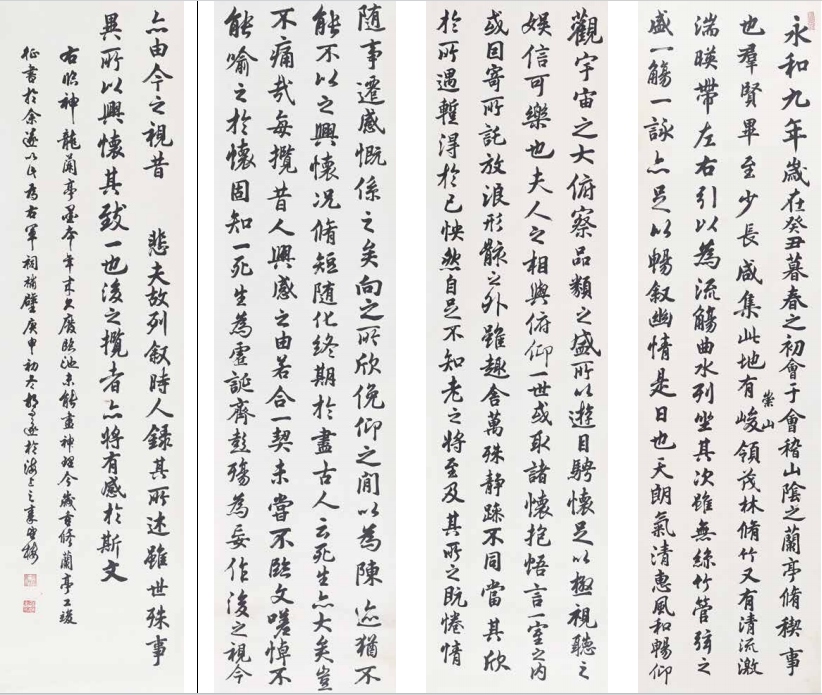 永和九年歲在癸丑暮春之初會于會稽山陰之蘭亭脩稧事
也羣賢畢至少長咸集此地有崇山峻領茂林脩竹又有清流激
湍暎帶左右引以為流觴曲水列坐其次雖無絲竹管弦之
盛一觴一詠亦足以暢叙幽情是日也天朗氣清惠風和暢仰
觀宇宙之大俯察品類之盛所以遊目騁懷足以極視聽之
娛信可樂也夫人之相與俯仰一世或取諸懷抱悟言一室之内
或因寄所託放浪形骸之外雖趣舍萬殊静躁不同當其欣
於所遇蹔得於己怏然自足不知老之將至及其所之既惓情
隨事遷感慨係之矣向之所欣俛仰之閒以為陳迹猶不
能不以之興懷况脩短隨化終期於盡古人云死生亦大矣豈
不痛哉每攬昔人興感之由若合一契未嘗不臨文嗟悼不
能喻之於懷固知一死生為虛誕齊彭殤為妄作後之視今
亦由今之視昔 悲夫故列叙時人錄其所述雖世殊事
異所以興懷其致一也後之攬者亦將有感於斯文
右臨神龍蘭亭墨本年來久廢臨池未能盡神理今歲重修蘭亭工竣
征書於余遂以此為右軍祠補壁庚申初冬胡問遂於海上之樓